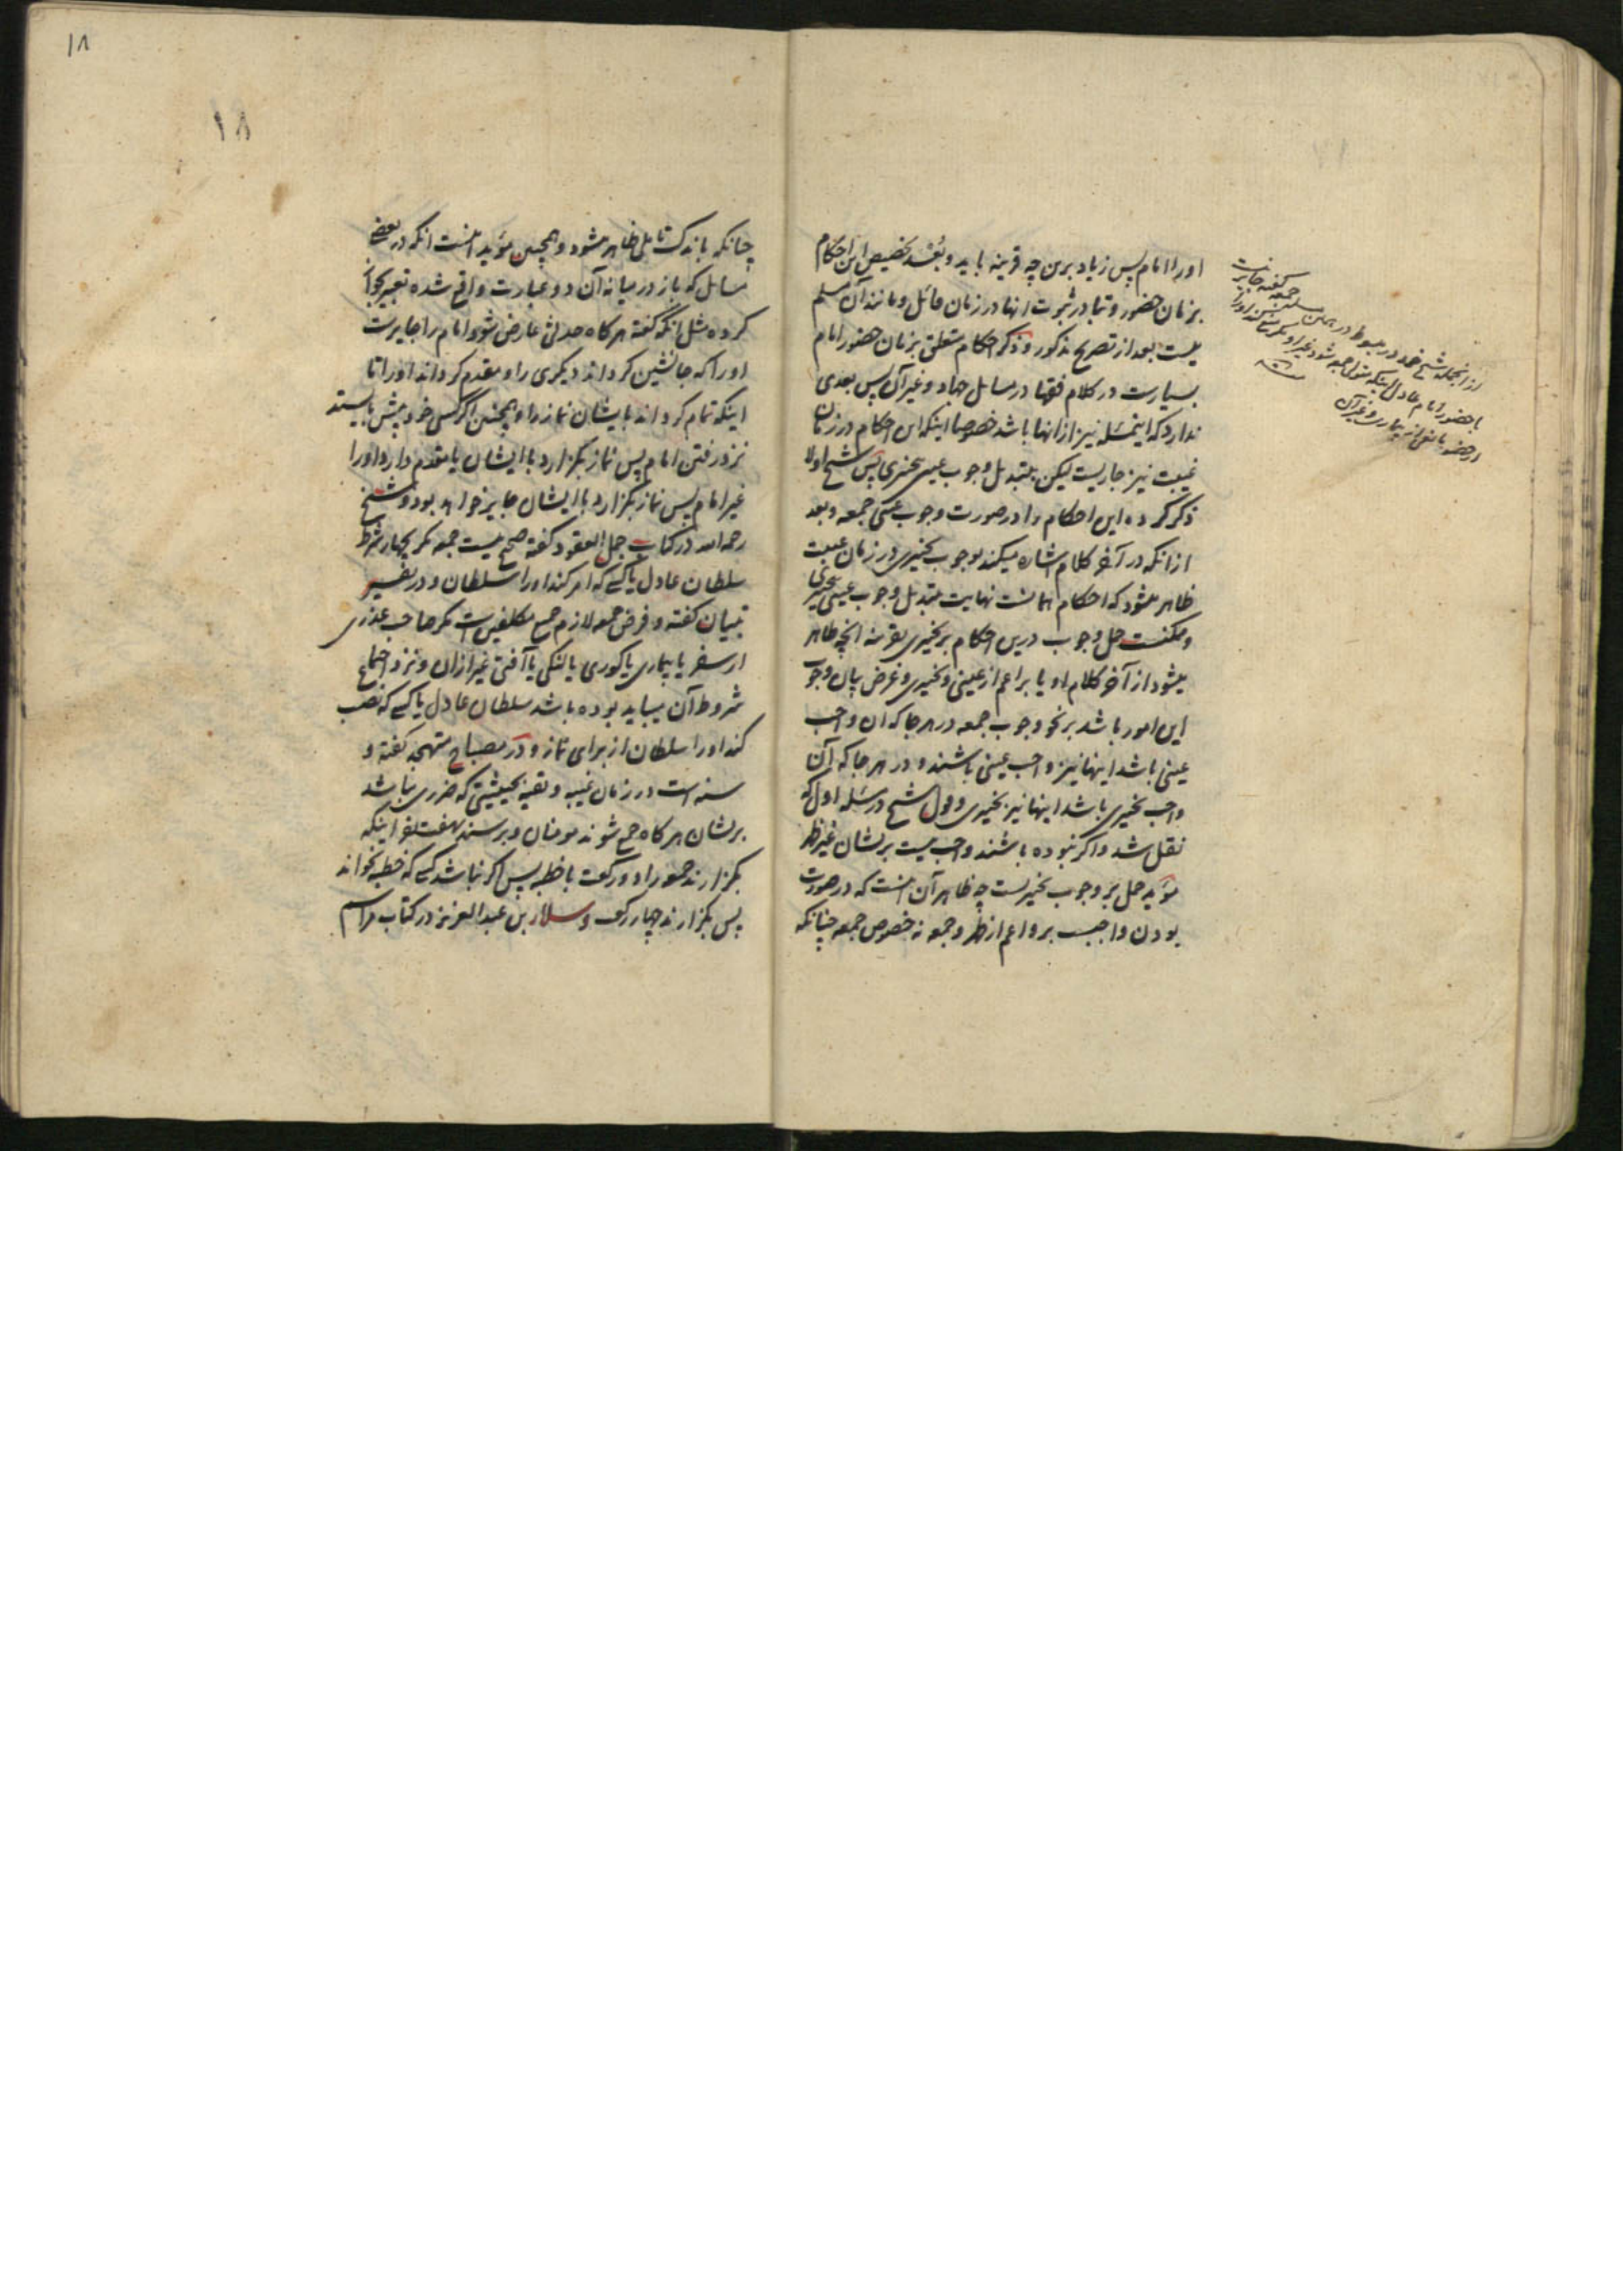 اورا امام پس زیاد برین چه قرینه باید و بُعْد تخصیص این احکام
بزمان حضور و تبادر ثبوت انها در زمان قائل و مانند آن مسلم
نیست بعد از تصریح مذکور و ذکر احکام متعلق بزمان حضور امام
بسیارست در کلام فقها در مسایل جهاد و غیر آن پس بعدی
ندارد که اینمسَله نیز از انها باشد خصوصا اینکه این احکام در زمان
غیبت نیز جاریست لیکن بتبدیل وجوب عینی بتخییری پس شیخ اولا
ذکر کرده این احکام را در صورت وجوب عینی جمعه و بعد
از انکه در آخر کلام اشاره میکند بوجوب تخییری در زمان غیبت
ظاهر میشود که احکام همانست نهایت بتبدیل وجوب عینی بتخییری
و ممکنست حمل وجوب درین احکام بر تخییری بقرینه انچه ظاهر
میشود از آخر کلام او یا بر اعم از عینی و تخییری و غرض بیان وجوب
این امور باشد بر نحو وجوب جمعه در هر جا که ان واجب
عینی باشد اینها نیز واجب عینی باشند و در هر جا که آن
واجب تخییری باشد اینها نیز تخییری و قول شیخ در مسَله اول که
نقل شد و اگر نبوده باشند واجب نیست بر ایشان غیر ظهر
مؤید حمل بر وجوب تخییریست چه ظاهر آن اینست که در صورت
بودن واجبست بر و اعم از ظهر و جمعه نه خصوص جمعه چنانکه
از انجمله شیخ خود در مبسوط در همین مسله
جمعه گفته جایز نیست
با حضور امام عادل اینکه متولی جمعه شود غیر او مگر
از حضور مانعی از بیماری و غیر آن
۱۸
۱۸
چنانکه باندک تاملی ظاهر میشود و همچنین مؤید اینست انکه در بعضے
مسایل که باز در میانه آن دو عبارت واقع شده تعبیر بجواز
کرده مثل انکه گفته هر کاه حدثی عارض شود امام را جایزست
اورا که جانشین کرداند دیکری را و مقدم کرداند اورا تا
اینکه تمام کرداند بایشان نماز را و همچنین اکر کسی خود پیش بایستد
نزد رفتن امام پس نماز بکزارد با ایشان یا مقدم دارد اورا
غیر امام پس نماز بکزارد با ایشان جایز خواهد بود و شیخ
رحمه الله در کتاب جمل العقود کفته صحیح نیست جمعه مکر بچهار شرط
سلطان عادل یا کسے که امر کند اورا سلطان و در تفسیر
تبیان کفته و فرض جمعه لازم جمیع مکلفین است مکر صاحب عذری
از سفر یا بیماری یا کوری یا لنکی یا آفتی غیر از ان و نزد اجتماع
شروط آن میباید بوده باشد سلطان عادل یا کسے که نصب
کند اورا سلطان از برای نماز و در مصباح متهجد کفته و
سنه است در زمان غیبه و تقیه بحیثیتی که ضرری نباشد
بر ایشان هر کاه جمع شوند مومنان و برسند بهفت نفر اینکه
بکزارند جمعه را دو رکعت با خطبه پس اکر نباشد کسے که خطبه بخواند
پس بکزارند چهار رکعت و سلار بن عبد العزیز در کتاب مراسم